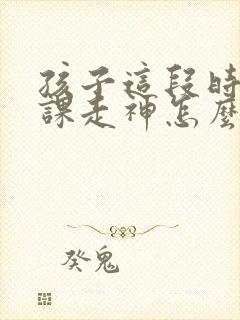 孩子這段時
課走神怎麼
癸鬼